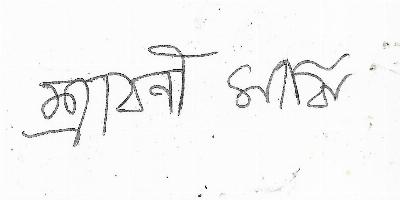 শ্রাবনী মাঝি